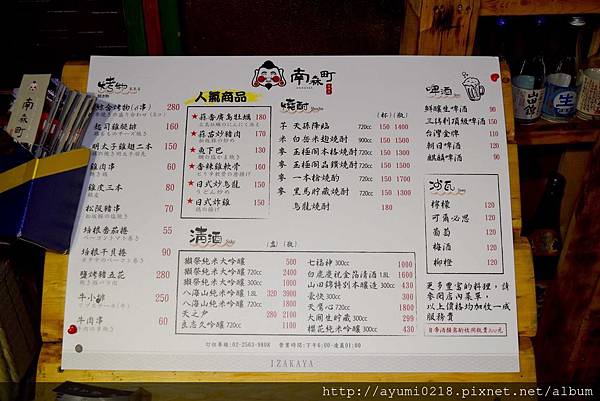 南森町
烤物
綜合烤物(6串) 280
起司雞腿排 160
明太子雞翅二本 150
雞肉串 60
雞皮三本 80
松阪豬串 90
培根番茄捲 90
培根干貝捲 90
鹽烤豬五花 230
牛小排 250
牛肉串 90
人氣商品
★蒜香廣島牡蠣 180
★蒜香炒豬肉 170
★魚下巴 130
★香辣雞軟骨 160
★日式炒烏龍 150
★日式炸雞 150
燒酎
(杯) (瓶)
芋 天孫降臨 720cc 150 1400
米 白岳米麴燒酎 900cc 150 1500
麥 玉極閣本格燒酎 720cc 150 1300
麥 玉極閣品鑽燒酎 720cc 150 1500
麥 一本槍燒酎 720cc 170 1700
麥 黑馬貯藏燒酎 720cc 150 1500
烏龍燒酎 180
啤酒
鮮釀生啤酒 90
三得利頂級啤酒 150
台灣金牌 110
朝日啤酒 120
麒麟啤酒 90
沙瓦
檸檬 120
可爾必思 120
葡萄 120
梅酒 120
柳橙 120
清酒
(盅) (瓶)
獺祭純米大吟釀 300cc 500
獺祭純米大吟釀 720cc 2400
獺祭純米大吟釀 300cc 1000
八海山純米大吟釀 1.8L 320 3900
八海山純米大吟釀 720cc 1800
天之戶 280 2100
良志久吟釀 720cc 1100
七福神 300cc 400
白鹿慶祝金箔清酒 1.8L 1600
山田錦特別本釀造 300cc 430
豪快 300cc 300
天鷹心 720cc 1000
大關生貯藏 300cc 299
櫻花純米吟釀 300cc 430
更多豐富的料理，請
參閱店內菜單，
以上價格均加收一成
服務費
訂位專線:02-2563-9808 營業時間:下午6:00-凌晨01:00
IZAKAYA
http://ayumi0218.pixnet.net/album